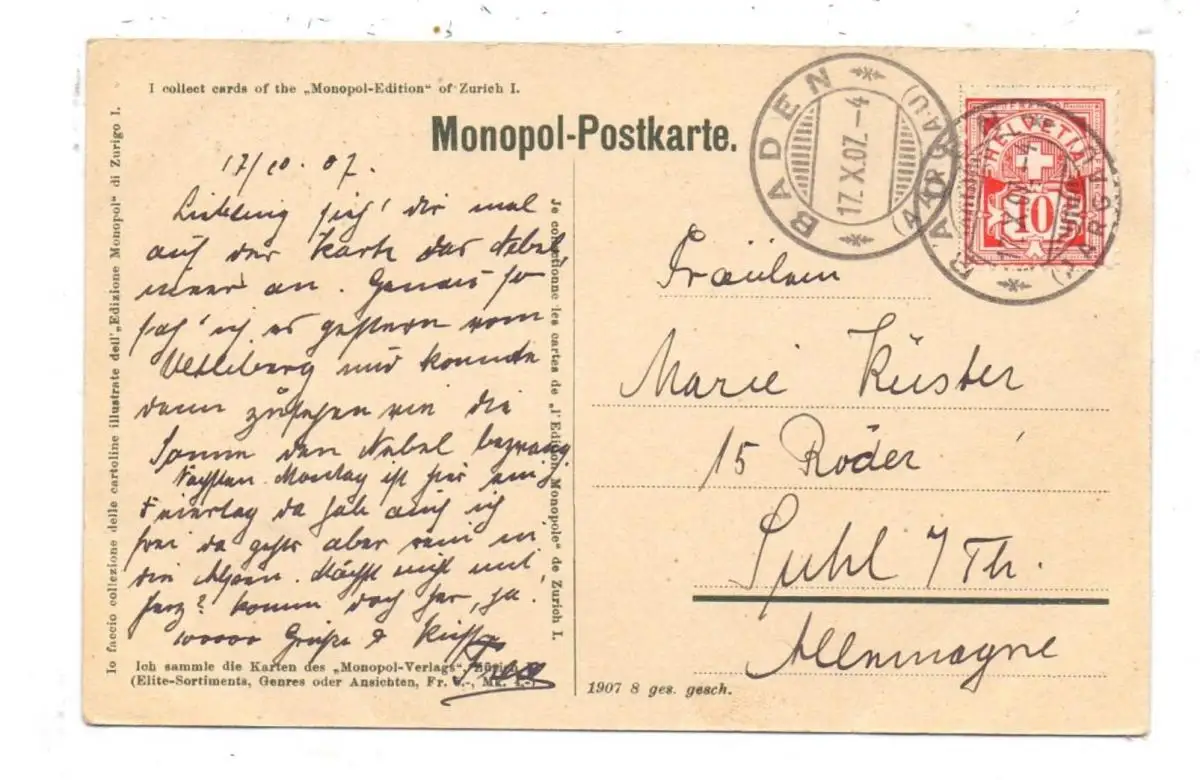 I collect cards of the „Monopol-Edition“ of Zurich I.
Monopol-Postkarte.
Io faccio collezione delle cartoline illustrate dell'„Edizione Monopol“ di Zurigo I.
Je collectionne les cartes de „l'Edition Monopole“ de Zurich I.
17/10.07.
Liebling sieh' dir mal
auf der Karte das Nebel
meer an. Genau so
sah' ich es gestern vom
Uetliberg und konnte
dann zusehen wie die
Sonne den Nebel bezwang
Nächsten Montag ist hier ein
Feiertag da hab auch ich
frei da gehts aber rein in
die Alpen. Möchst nicht mit
Herz? komm doch her, ja!
10000 Grüße & Küsse
Ich sammle die Karten des „Monopol-Verlags“, Zürich
(Elite-Sortiments, Genres oder Ansichten, Fr. -, Mk. -
1907 8 ges. gesch.
BADEN
(AARGAU)
17.X.07.-4
HELVETIA
10
BADEN
Fräulein
Marie Küster
15 Röder
Suhl / Th.
Allemagne